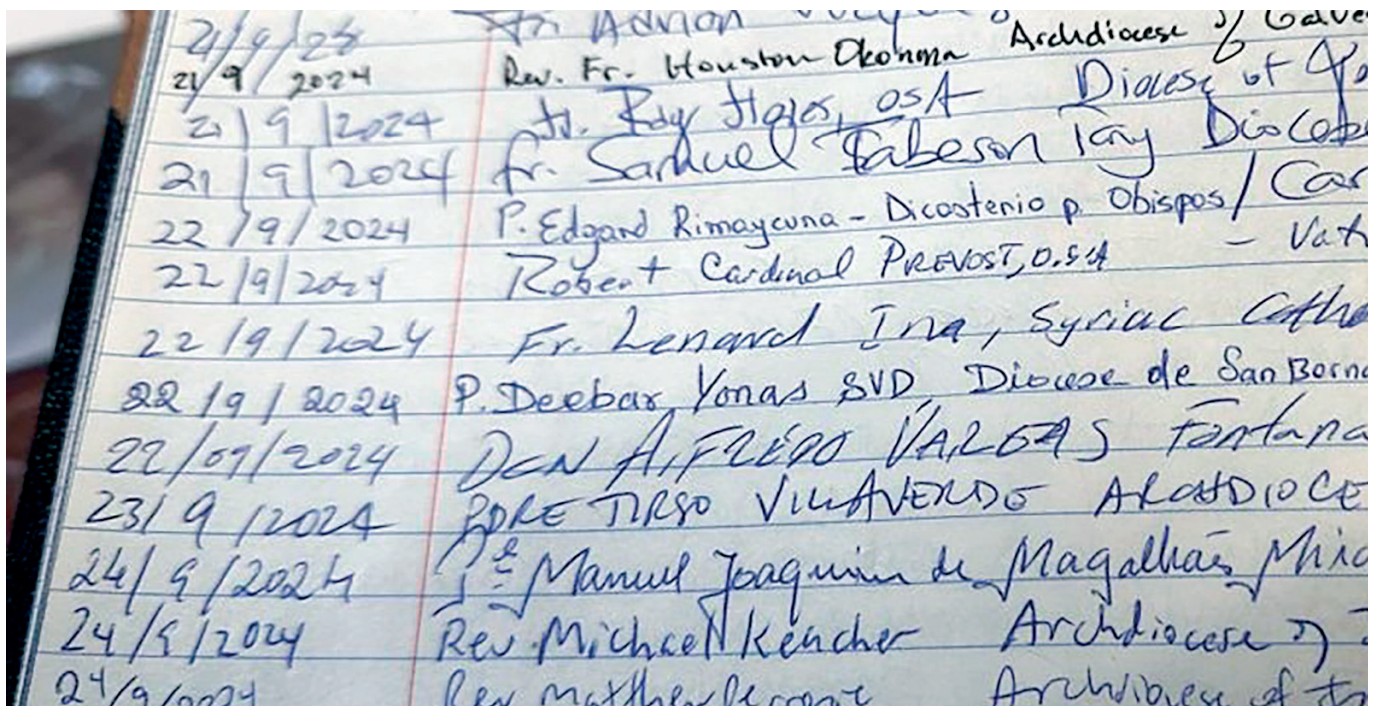 21/9/24 Fr. Adrian
21/9 2024 Rev. Fr. Houston Okonma Archdiocese of Galve
21/9/2024 Diocese of
21/9/2024 fr. Samuel
22/9/2024 P. Edgard Rimaycuna - Dicasterio p. Obispos/Car
22/9/2024 Robert Cardinal PREVOST, O.S.A - Vat
22/9/2024 Fr. Lenard Ina, Syriac Catho
22/9/2024 P. Deebar Yonas SVD, Diocese de San Berna
22/09/2024 DCN ALFREDO VARGAS Fontana
23/9/2024 PDRE TIRSO VILLAVERDE ARCHDIOCE
24/9/2024 Pe Manuel Joaquim de Magalhães
24/9/2024 Rev. Michael Kencher Archdiocese of
24/9/2024 Rev Matthew Archdiocese of